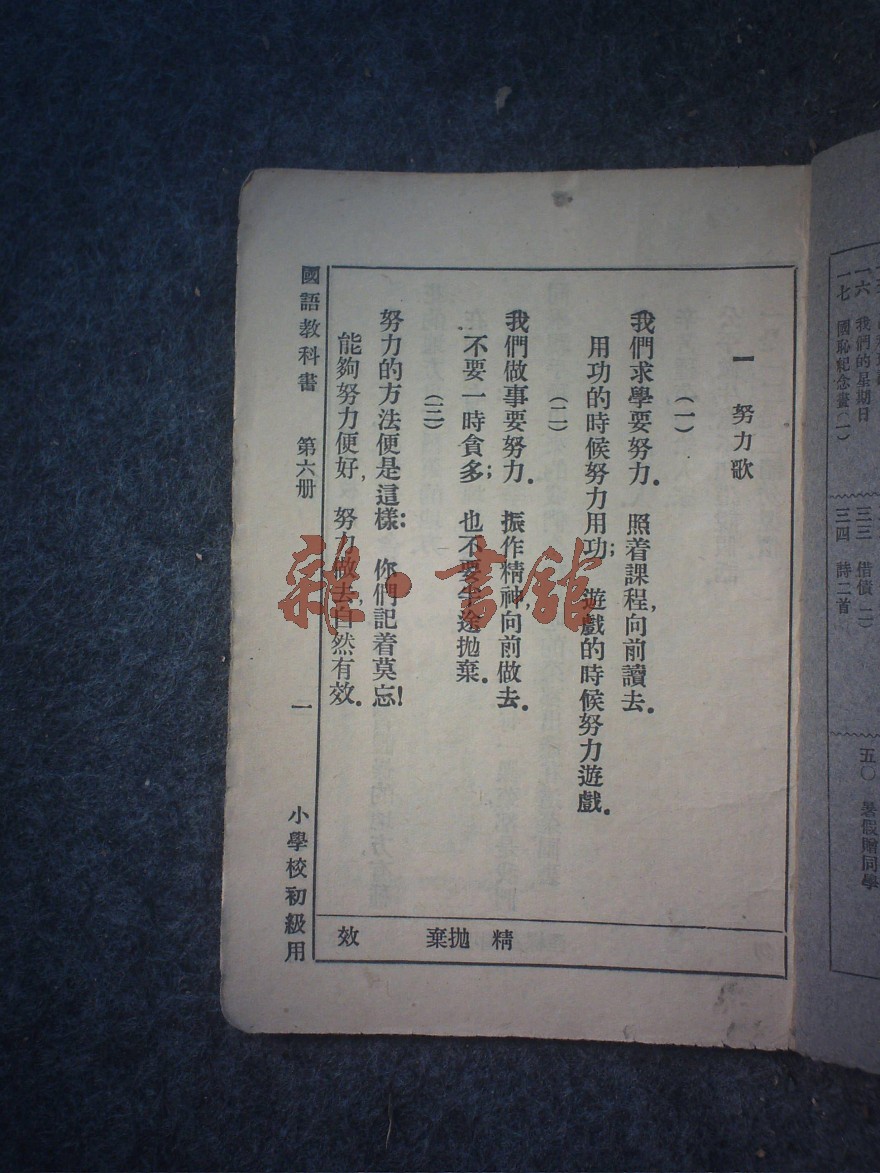 一六 我們的星期日
一七 國恥紀念畫(一)
三三 借債(二)
三四 詩二首
五〇 暑假贈同學
一 努力歌
(一)
我們求學要努力。照着課程,向前讀去。
用功的時候努力用功;遊戲的時候努力遊戲。
(二)
我們做事要努力。振作精神向前做去。
不要一時貪多;也不要半途拋棄。
(三)
努力的方法便是這樣:你們記着莫忘!
能夠努力便好,努力做去,自然有效。
精 拋棄 效
國語教科書 第六册 一 小學校初級用
雜·書館